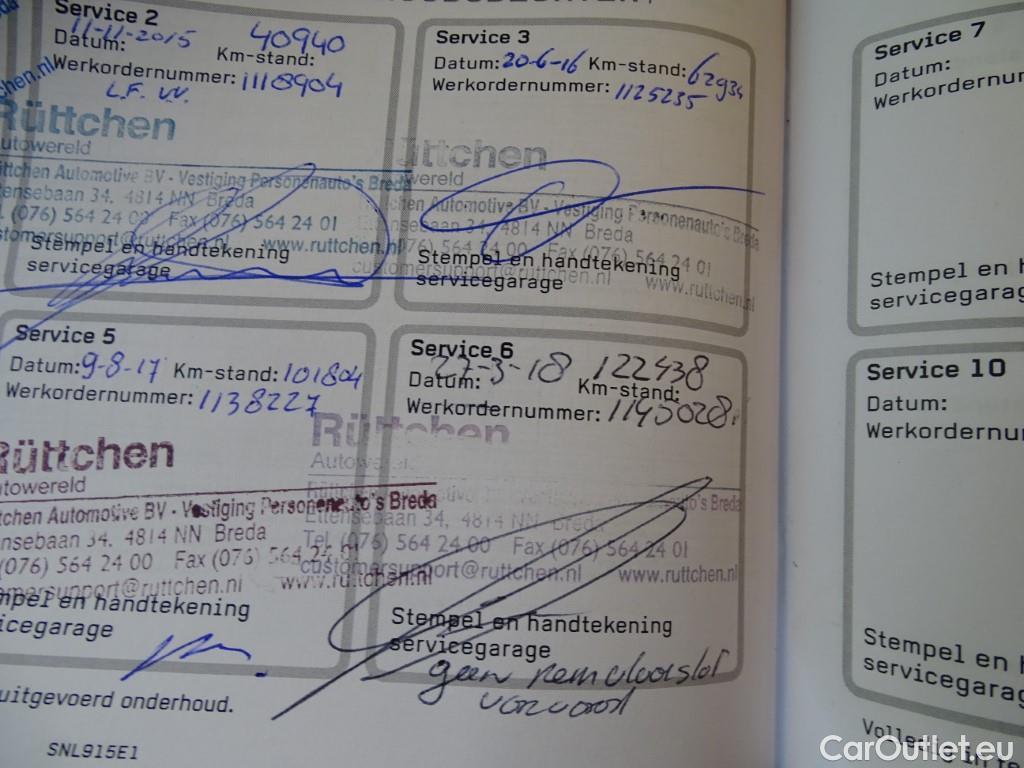 Service 2
11-11-2015 40940
Datum: Km-stand:
Werkordernummer: 1118904
L.F. VV.
Rüttchen
utowereld
ttchen Automotive BV - Vestiging Personenauto's Breda
ttensebaan 34, 4814 NN Breda
(076) 564 24 00 Fax (076) 564 24 01
stomersupport@ruttchen.nl www.ruttchen.nl
Stempel en handtekening
servicegarage
Service 3
Datum: 20-6-16 Km-stand: 62934
Werkordernummer: 1125235
üttchen
wereld
ttchen Automotive BV - Vestiging Personenauto's Breda
Ettensebaan 34, 4814 NN Breda
(076) 564 24 00 Fax (076) 564 24 01
customersupport@ruttchen.nl www.ruttchen.nl
Stempel en handtekening
servicegarage
Service 5
Datum: 9-8-17 Km-stand: 101804
Werkordernummer: 1138227
Rüttchen
utowereld
tchen Automotive BV - Vestiging Personenauto's Breda
nsebaan 34, 4814 NN Breda
(076) 564 24 00 Fax (076) 564 24 01
mersupport@ruttchen.nl www.ruttchen.nl
mpel en handtekening
icegarage
Service 6
27-3-18 122438
Datum: Km-stand:
Werkordernummer: 1145028
Rüttchen
Autowe
Ettensebaan 34, 4814 NN Breda
Tel. (076) 564 24 00 Fax (076) 564 24 01
customersupport@ruttchen.nl www.ruttchen.nl
Stempel en handtekening
servicegarage
geen
uitgevoerd onderhoud.
SNL915E1
Service 7
Datum:
Werkordernum
Stempel en h
servicegarag
Service 10
Datum:
Werkordernu
Stempel en h
servicegarag
CarOutlet.eu